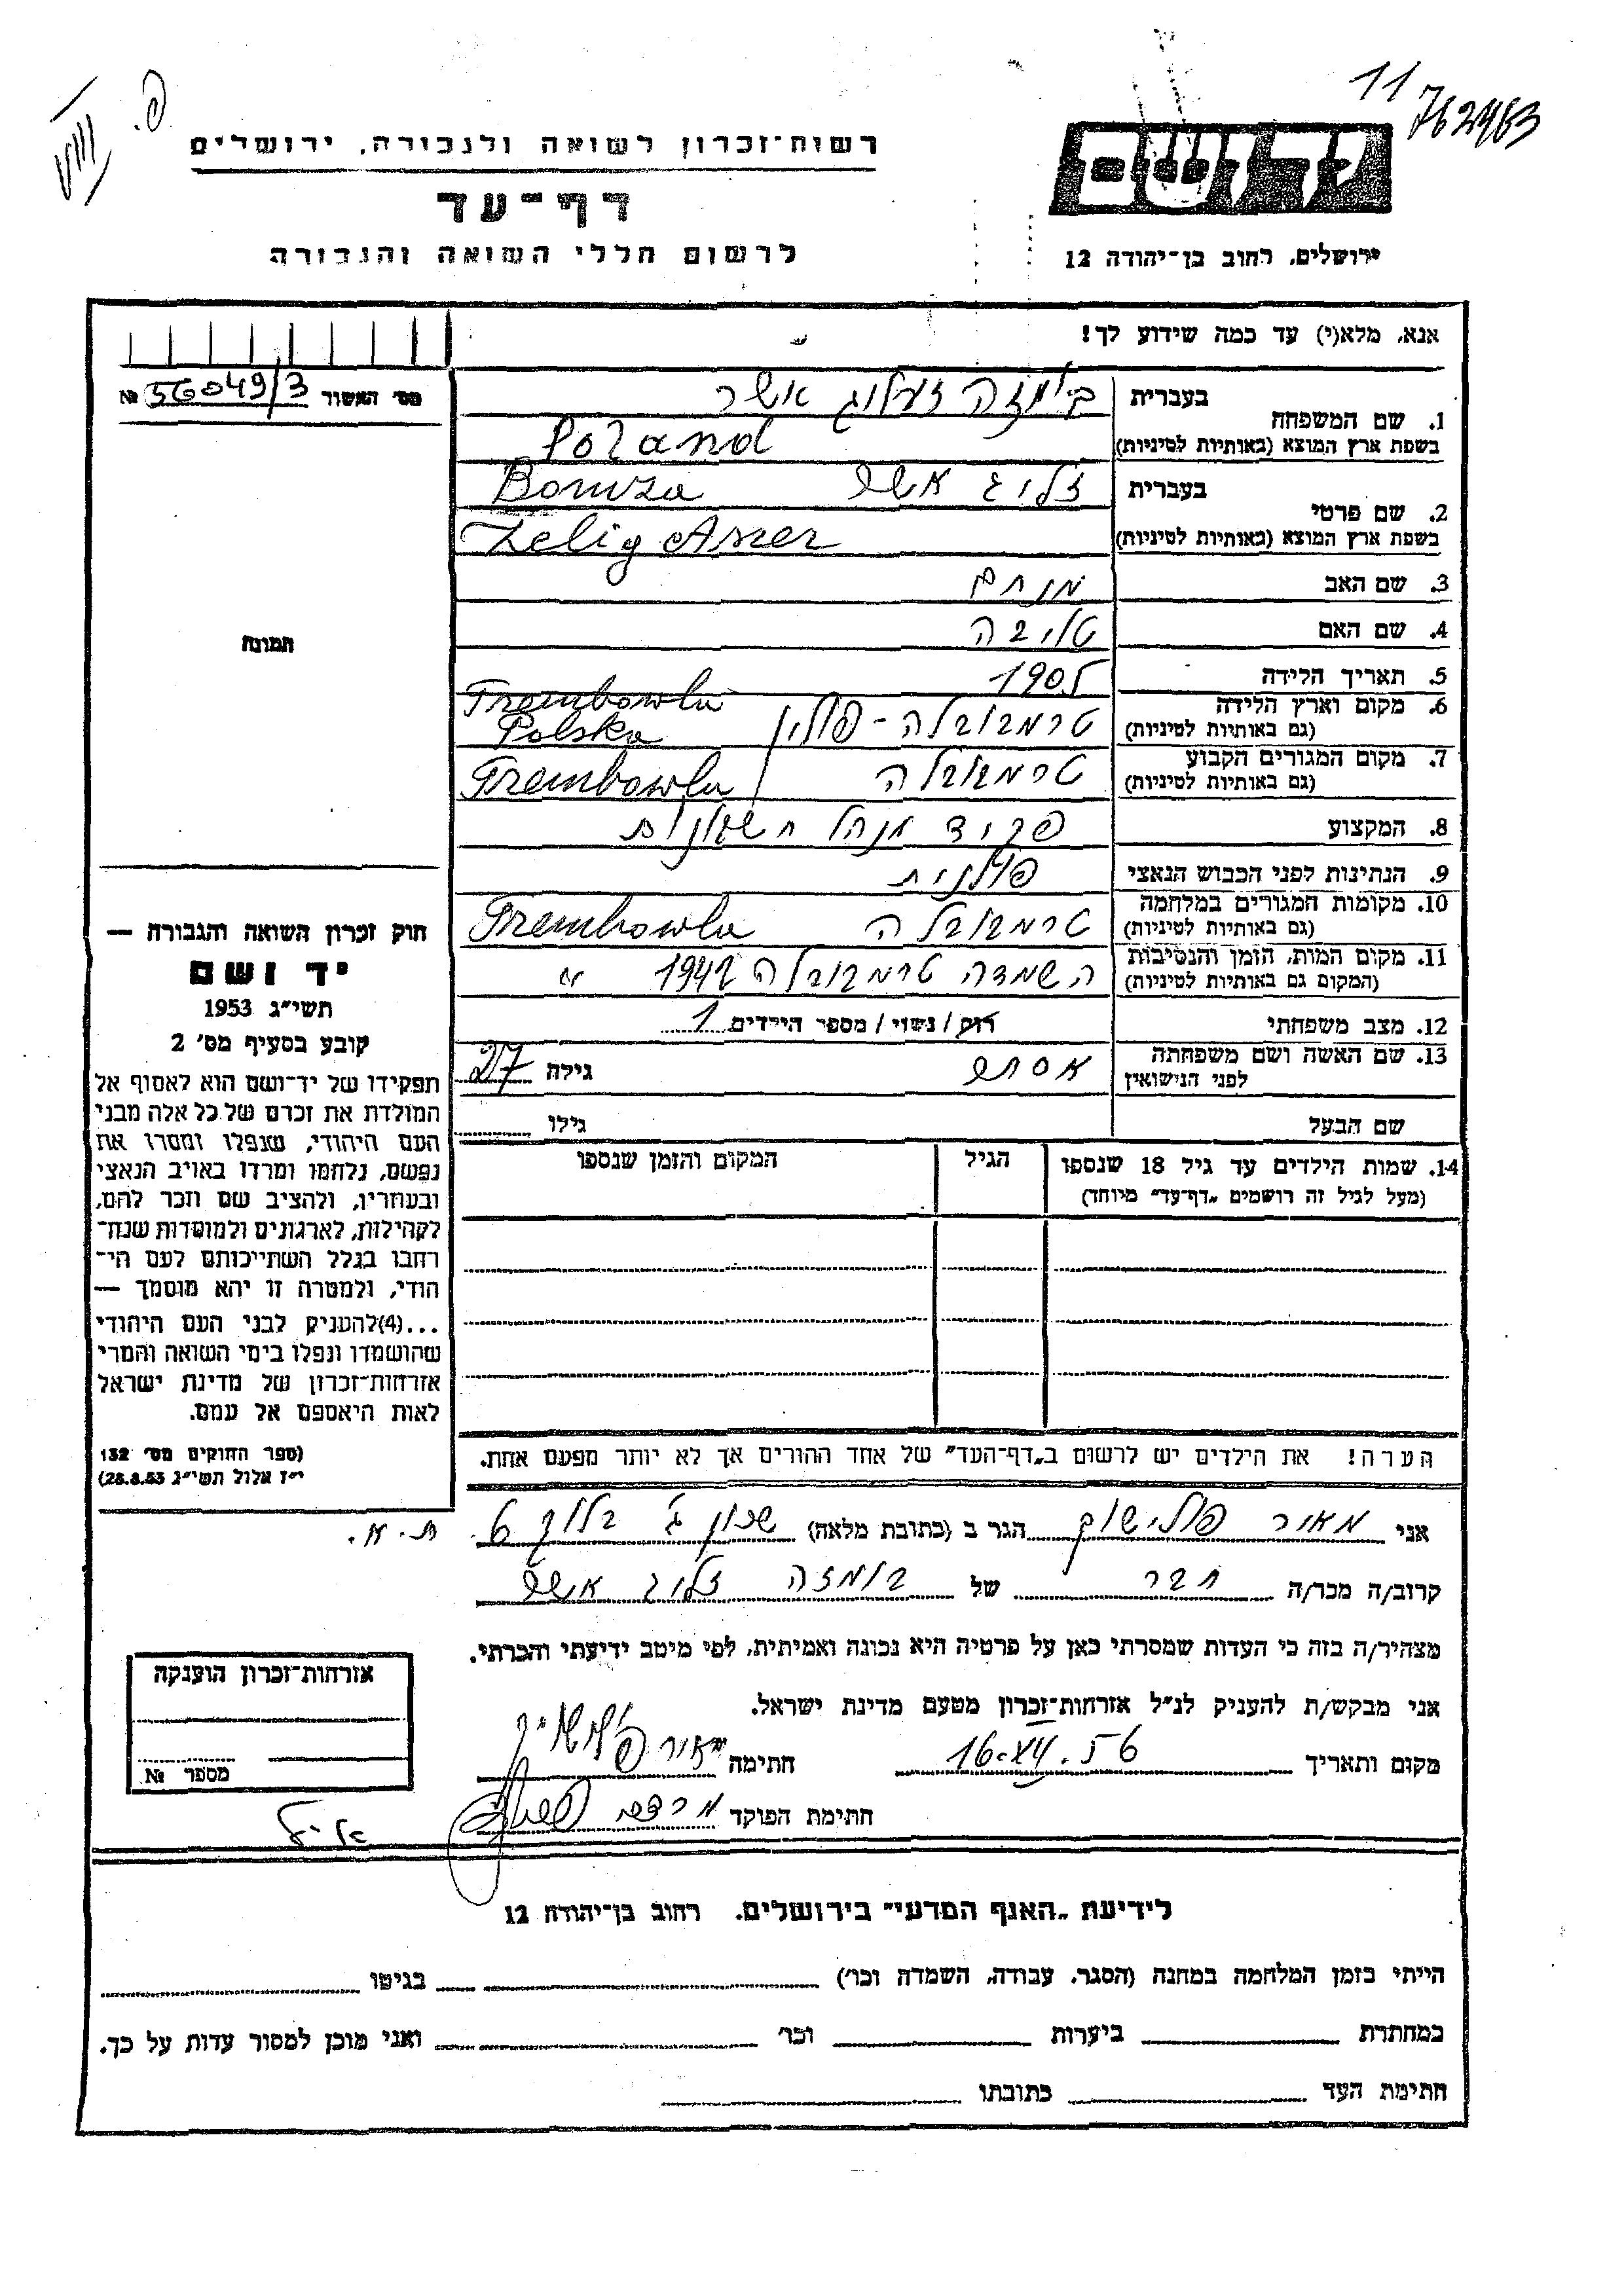 11
762463
פ.
רשות־זכרון לשואה ולגבורה, ירושלים
דף־עד
לרשום חללי השואה והגבורה
יד ושם
ירושלים, רחוב בן־יהודה 12
אנא, מלא(י) עד כמה שידוע לך!
מס׳ האשור 56049/3 №
תמונה
1. שם המשפחה בעברית בומזה זעליג אשר
בשפת ארץ המוצא (באותיות לטיניות) Poland
2. שם פרטי בעברית זליג אשר Bomza
בשפת ארץ המוצא (באותיות לטיניות) Zelig Aszer
3. שם האב מנחם
4. שם האם טויבה
5. תאריך הלידה 1905
6. מקום וארץ הלידה (גם באותיות לטיניות) טרמבובלה - פולין Trembowla Polska
7. מקום המגורים הקבוע (גם באותיות לטיניות) טרמבובלה Trembowla
8. המקצוע פקיד מנהל חשבונות
9. הנתינות לפני הכבוש הנאצי פולנית
10. מקומות המגורים במלחמה (גם באותיות לטיניות) טרמבובלה Trembowla
11. מקום המות, הזמן והנסיבות (המקום גם באותיות לטיניות) השמדה טרמבובלה 1942 "
12. מצב משפחתי רוק / נשוי / מספר הילדים 1
13. שם האשה ושם משפחתה לפני הנישואין אסתר גילה 27
שם הבעל גילו
14. שמות הילדים עד גיל 18 שנספו הגיל המקום והזמן שנספו
(מעל לגיל זה רושמים „דף־עד״ מיוחד)
הערה! את הילדים יש לרשום ב„דף־העד״ של אחד ההורים אך לא יותר מפעם אחת.
חוק זכרון השואה והגבורה —
יד ושם
תשי״ג 1953
קובע בסעיף מס׳ 2
תפקידו של יד־ושם הוא לאסוף אל
המולדת את זכרם של כל אלה מבני
העם היהודי, שנפלו ומסרו את
נפשם, נלחמו ומרדו באויב הנאצי
ובעוזריו, ולהציב שם וזכר להם,
לקהילות, לארגונים ולמוסדות שנח־
רבו בגלל השתייכותם לעם הי־
הודי, ולמטרה זו יהא מוסמך —
...(4) להעניק לבני העם היהודי
שהושמדו ונפלו בימי השואה והמרי
אזרחות־זכרון של מדינת ישראל
לאות היאספם אל עמם.
(ספר החוקים מס׳ 132
י״ז אלול תשי״ג 28.8.53)
אני מאיר פולישוק הגר ב (כתובת מלאה) שכון ג׳ בלוק 6 ת.א.
קרוב/ה מכר/ה חבר של בומזה זליג אשר
מצהיר/ה בזה כי העדות שמסרתי כאן על פרטיה היא נכונה ואמיתית, לפי מיטב ידיעתי והכרתי.
אני מבקש/ת להעניק לנ״ל אזרחות־זכרון מטעם מדינת ישראל.
מקום ותאריך 16.XII.56 חתימה מאיר פולישוק
חתימת הפוקד
אזרחות־זכרון הוענקה
מספר №
לידיעת „האגף המדעי״ בירושלים, רחוב בן־יהודה 12
הייתי בזמן המלחמה במחנה (הסגר, עבודה, השמדה וכו׳) בגיטו
במחתרת ביערות וכו׳ ואני מוכן למסור עדות על כך.
חתימת העד כתובתו